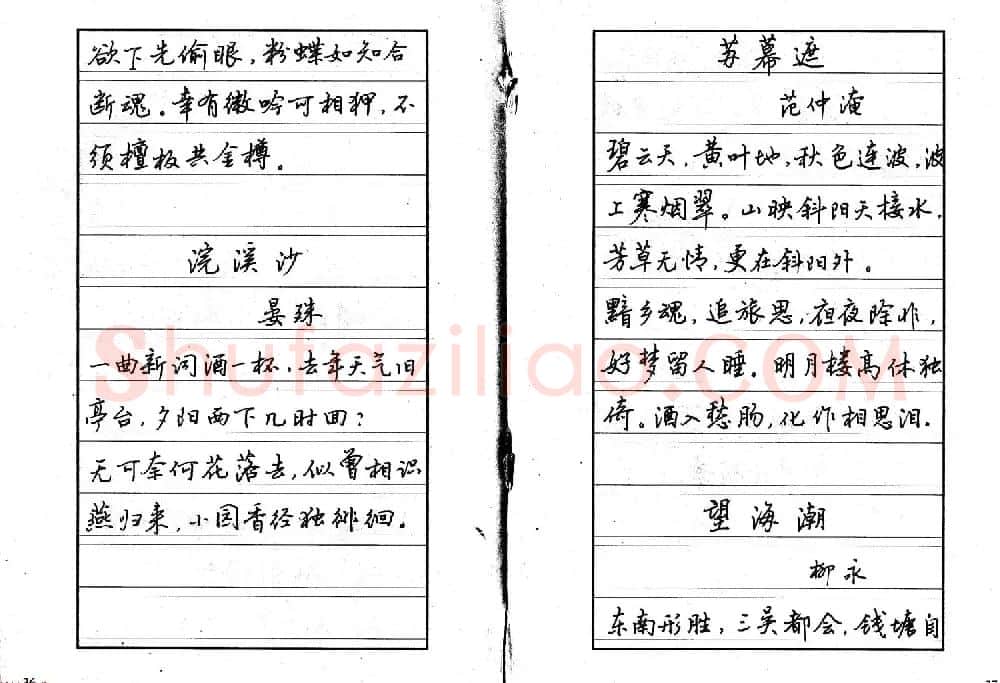 欲下先偷眼，粉蝶如知合
断魂。幸有微吟可相狎，不
须檀板共金樽。
浣溪沙
晏殊
一曲新词酒一杯，去年天气旧
亭台，夕阳西下几时回？
无可奈何花落去，似曾相识
燕归来，小园香径独徘徊。
36
苏幕遮
范仲淹
碧云天，黄叶地，秋色连波，波
上寒烟翠。山映斜阳天接水，
芳草无情，更在斜阳外。
黯乡魂，追旅思，夜夜除非，
好梦留人睡。明月楼高休独
倚。酒入愁肠，化作相思泪。
望海潮
柳永
东南形胜，三吴都会，钱塘自
Shufaziliao.COM